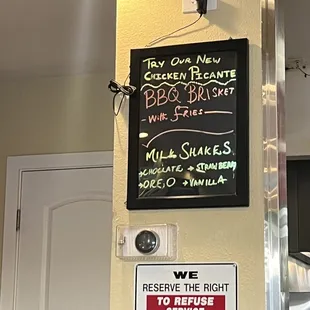 TRY OUR NEW
CHICKEN PICANTE
BBQ BRISKET
- With fries
MILK SHAKES
→CHOCLATE → STRAWBERRY
→OREO →VANILLA
WE
RESERVE THE RIGHT
TO REFUSE
SERVICE